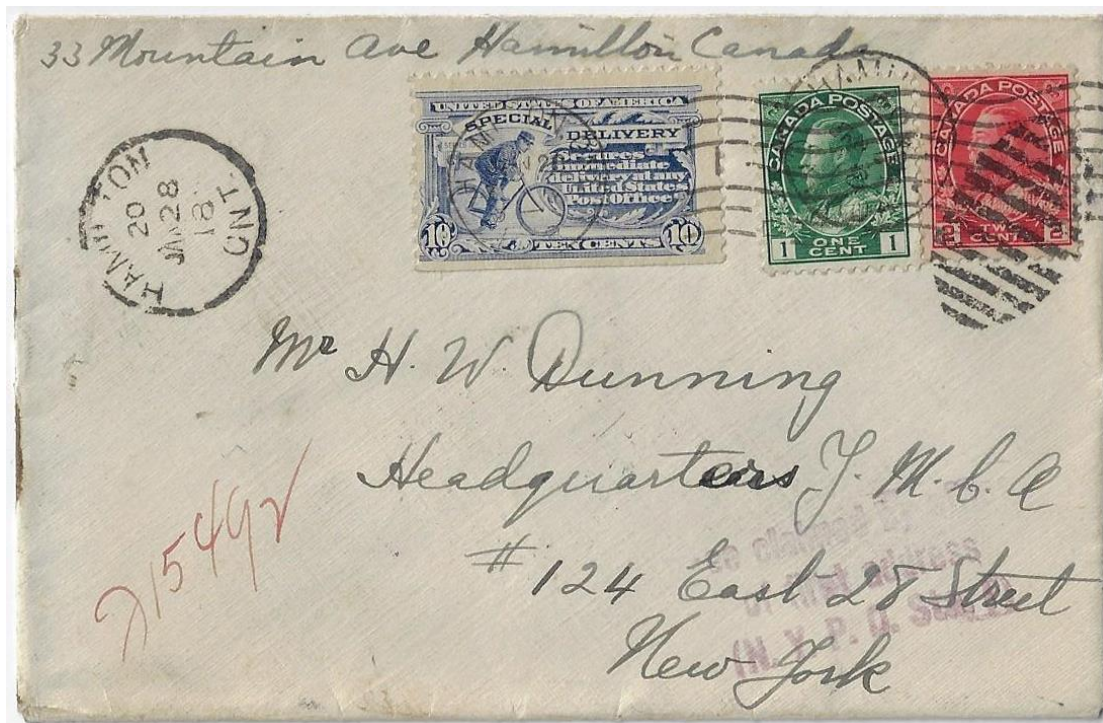 33 Mountain Ave Hamilton Canada
UNITED STATES OF AMERICA
SPECIAL DELIVERY
Secures
immediate
delivery at any
United States
Post Office
10 TEN CENTS 10
CANADA POSTAGE
1 ONE CENT 1
CANADA POSTAGE
2 TWO CENTS 2
HAMILTON
20
JAN 28
18
ONT.
Mr H. W. Dunning
Headquarters Y. M. C. A
# 124 East 28 Street
New York
215492
claimed
at first address
(N. Y. P. O.